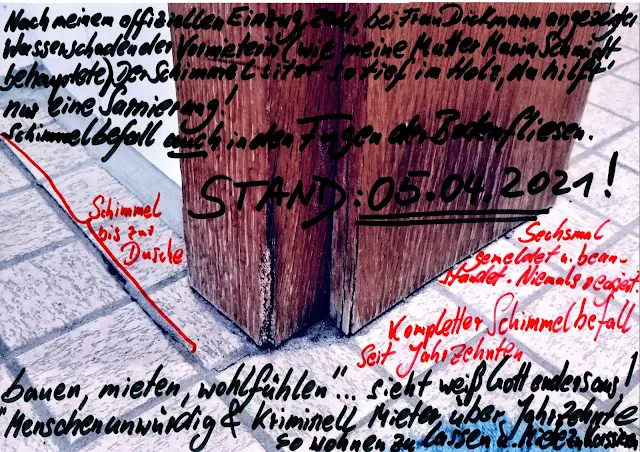 Nach meinem offiziellen Einzug dort, bei Frau Dickmann angezeigter
Wasserschaden der Vormieterin (wie meine Mutter Maria Schmidt
behauptete) Der Schimmel sitzt so tief im Holz, da hilft
nur eine Sarnierung!
Schimmelbefall auch in den Fugen der Bodenfliesen.
STAND: 05.04.2021!
Schimmel
bis zur
Dusche
Sechsmal
gemeldet u. bean-
standet. Niemals reagiert.
Kompletter Schimmelbefall
seit Jahrzehnten
bauen, mieten, wohlfühlen"... sieht weiß Gott anders aus!
"Menschenunwürdig & Kriminell Mieter über Jahrzehnte
so wohnen zu lassen u. Miete zu kassieren